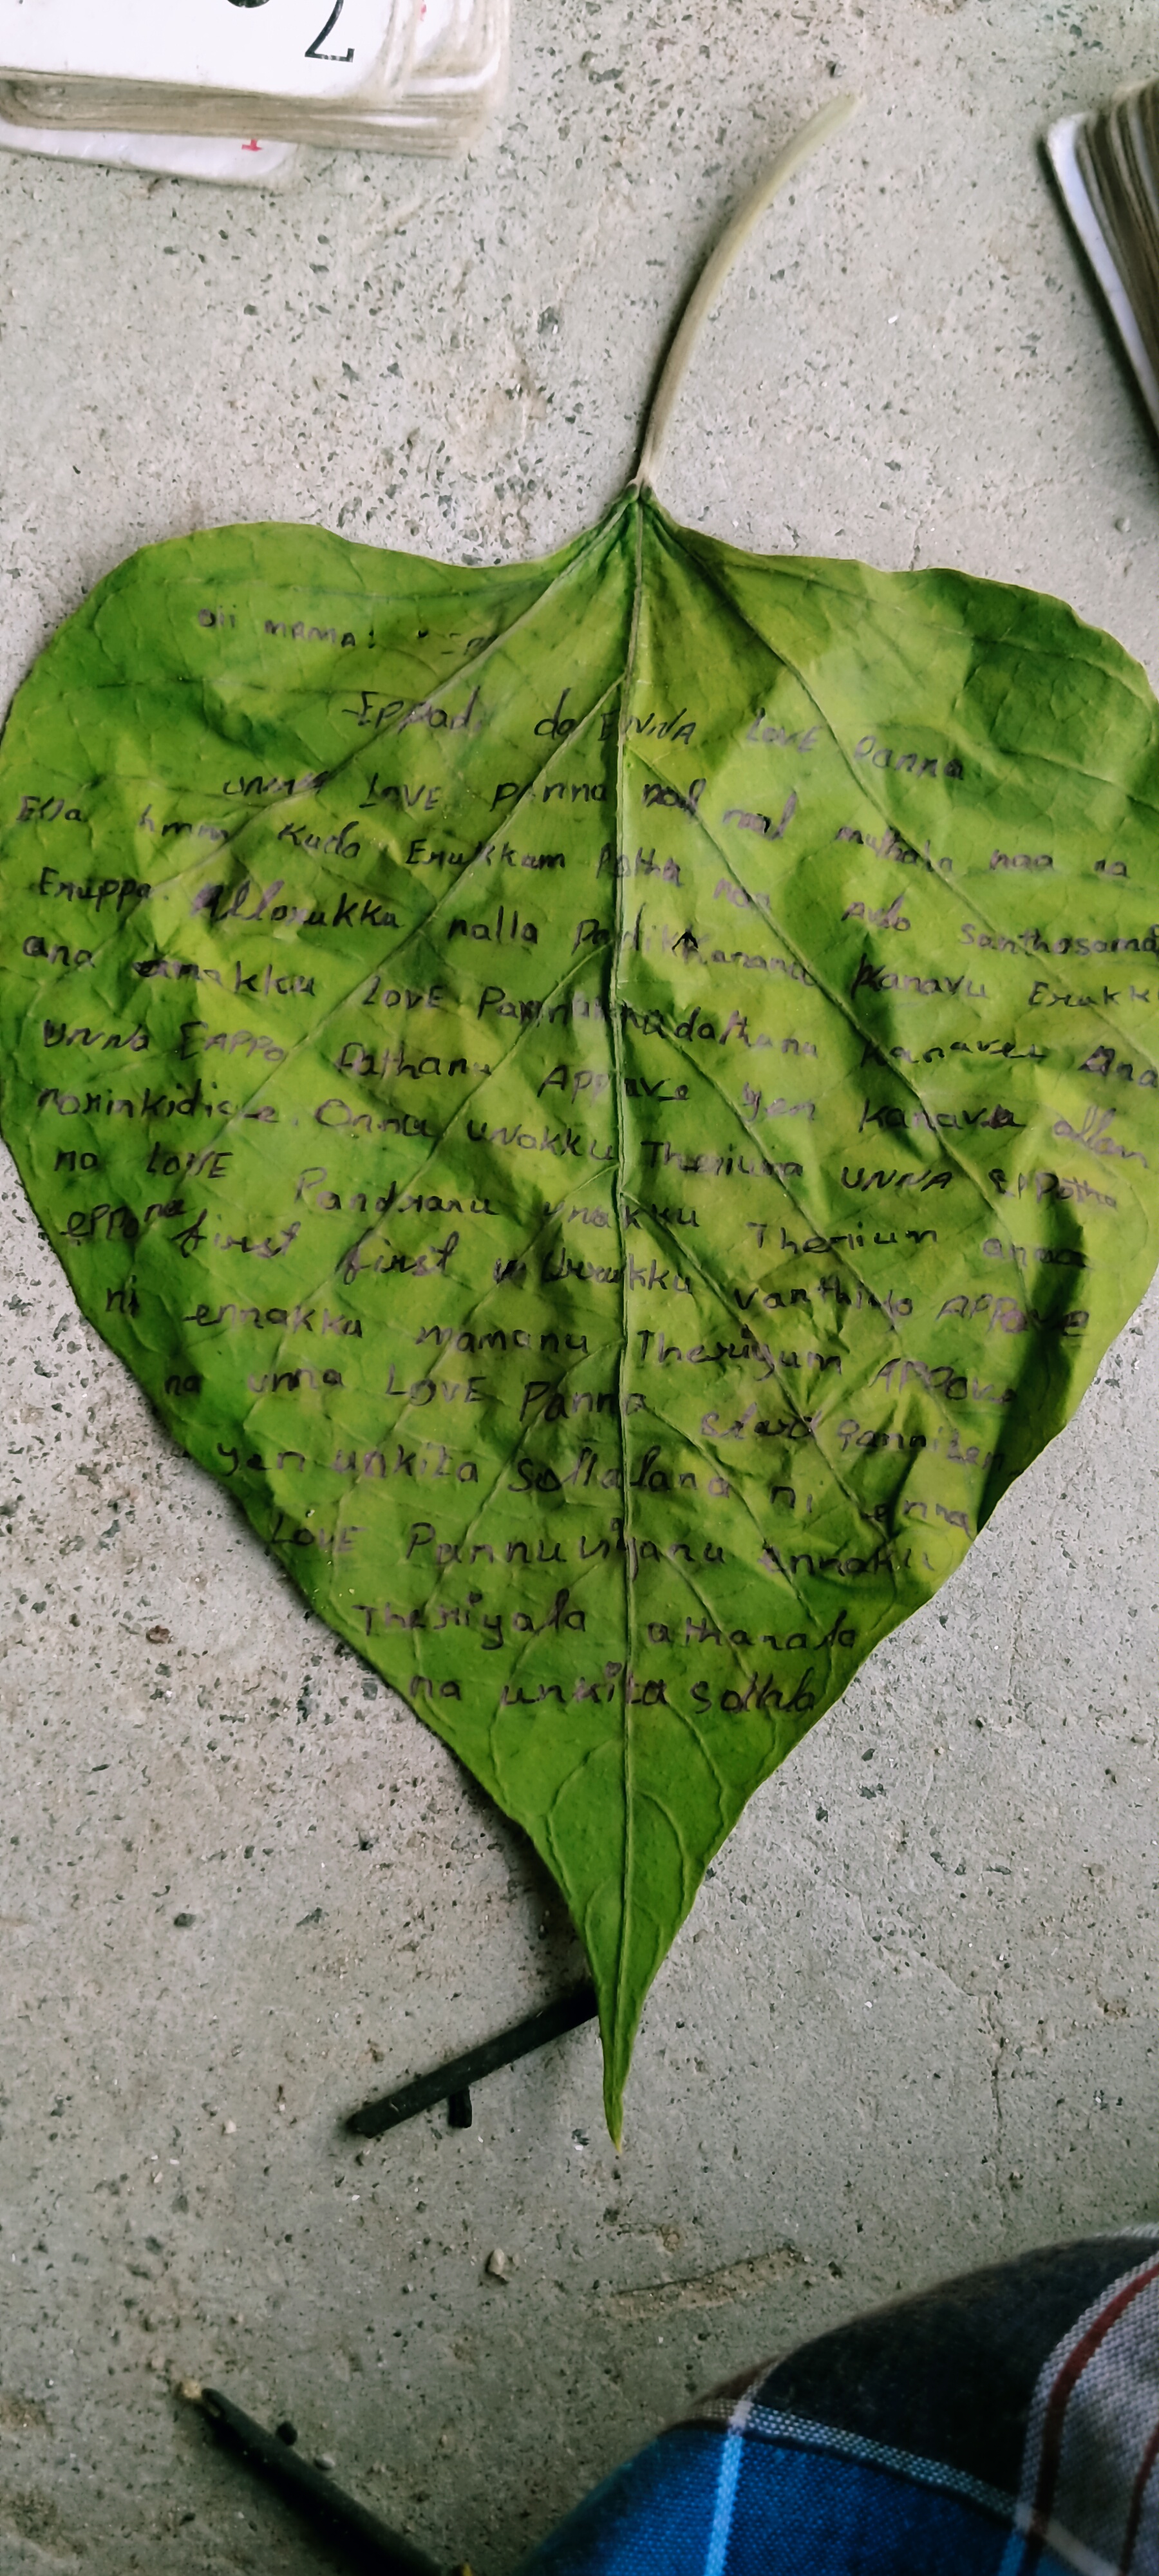 7
oii mama!
Eppadi da ENNA LOVE Panna
unna LOVE panna nal naal mulbata naa na
Ella hmm Kuda Erukkum Potha naa avlo santhosama
Eruppa Allorukku nalla Padikkananu Kanavu Erukk
ana enakku LOVE Pannakudathanu Kanaver Ana
UNNa EAPPO Pathanu Appave yen Kanava ellam
norinkidice. Onnu unakku Theriuma UNNA eppotha
na LOVE Pandranu unakku Therium anna
eppo na first first vanthiyo APPOVE
ni ennakku mamanu Theriyum APPOve
na unna LOVE Panna start Panniten
yen unkita sollalana ni enna
LOVE Pannuviyanu ennaku
Theriyala athanala
na unkita sollala